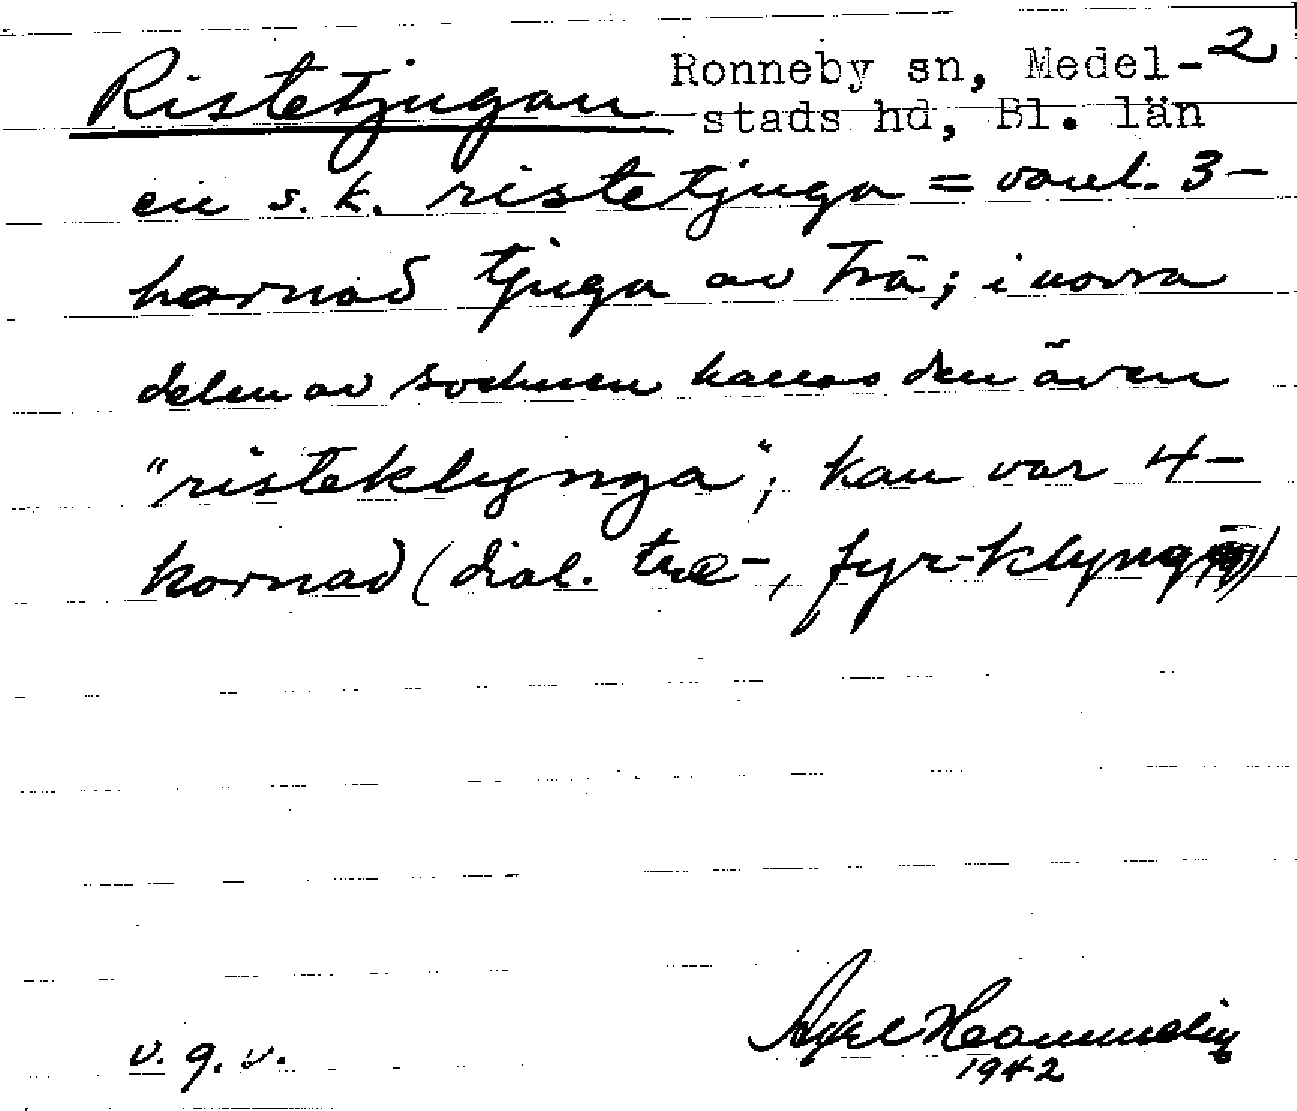 Ristetjugan Ronneby sn, Medel- 2
stads hd, Bl. län
en s. k. ristetjuga = vanl. 3-
hornad tjuga av trä; i norra
delen av socknen kallas den även
"risteklynga"; kan var 4-
hornad (dial. tre-, fyr-klyng
v. g. v.
Axel Hammelin
1942